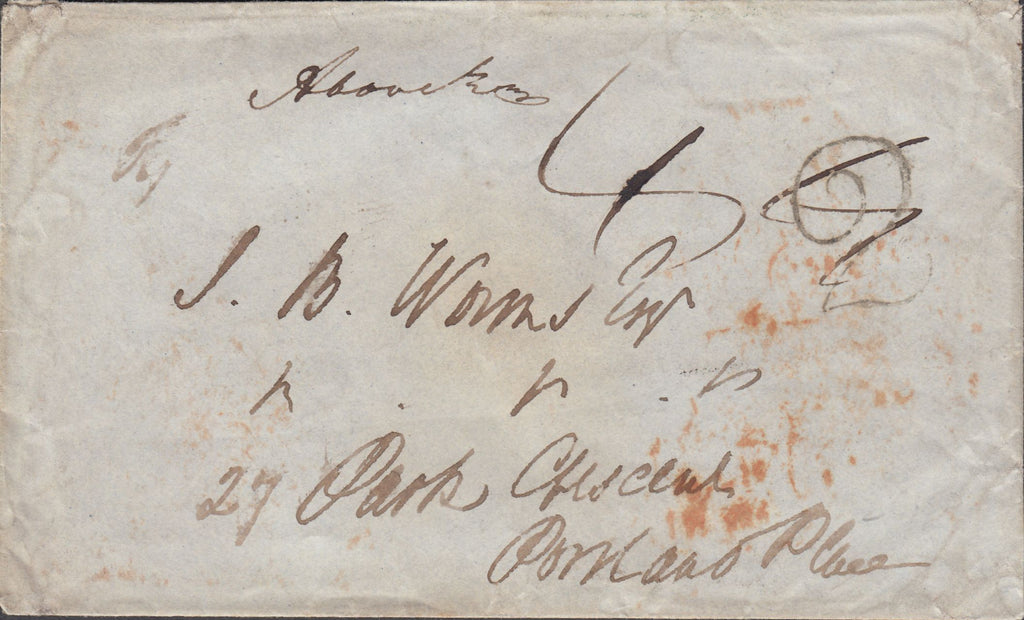 Above
S. B. Worms Esqr
27 Park Crescent
Portland Place